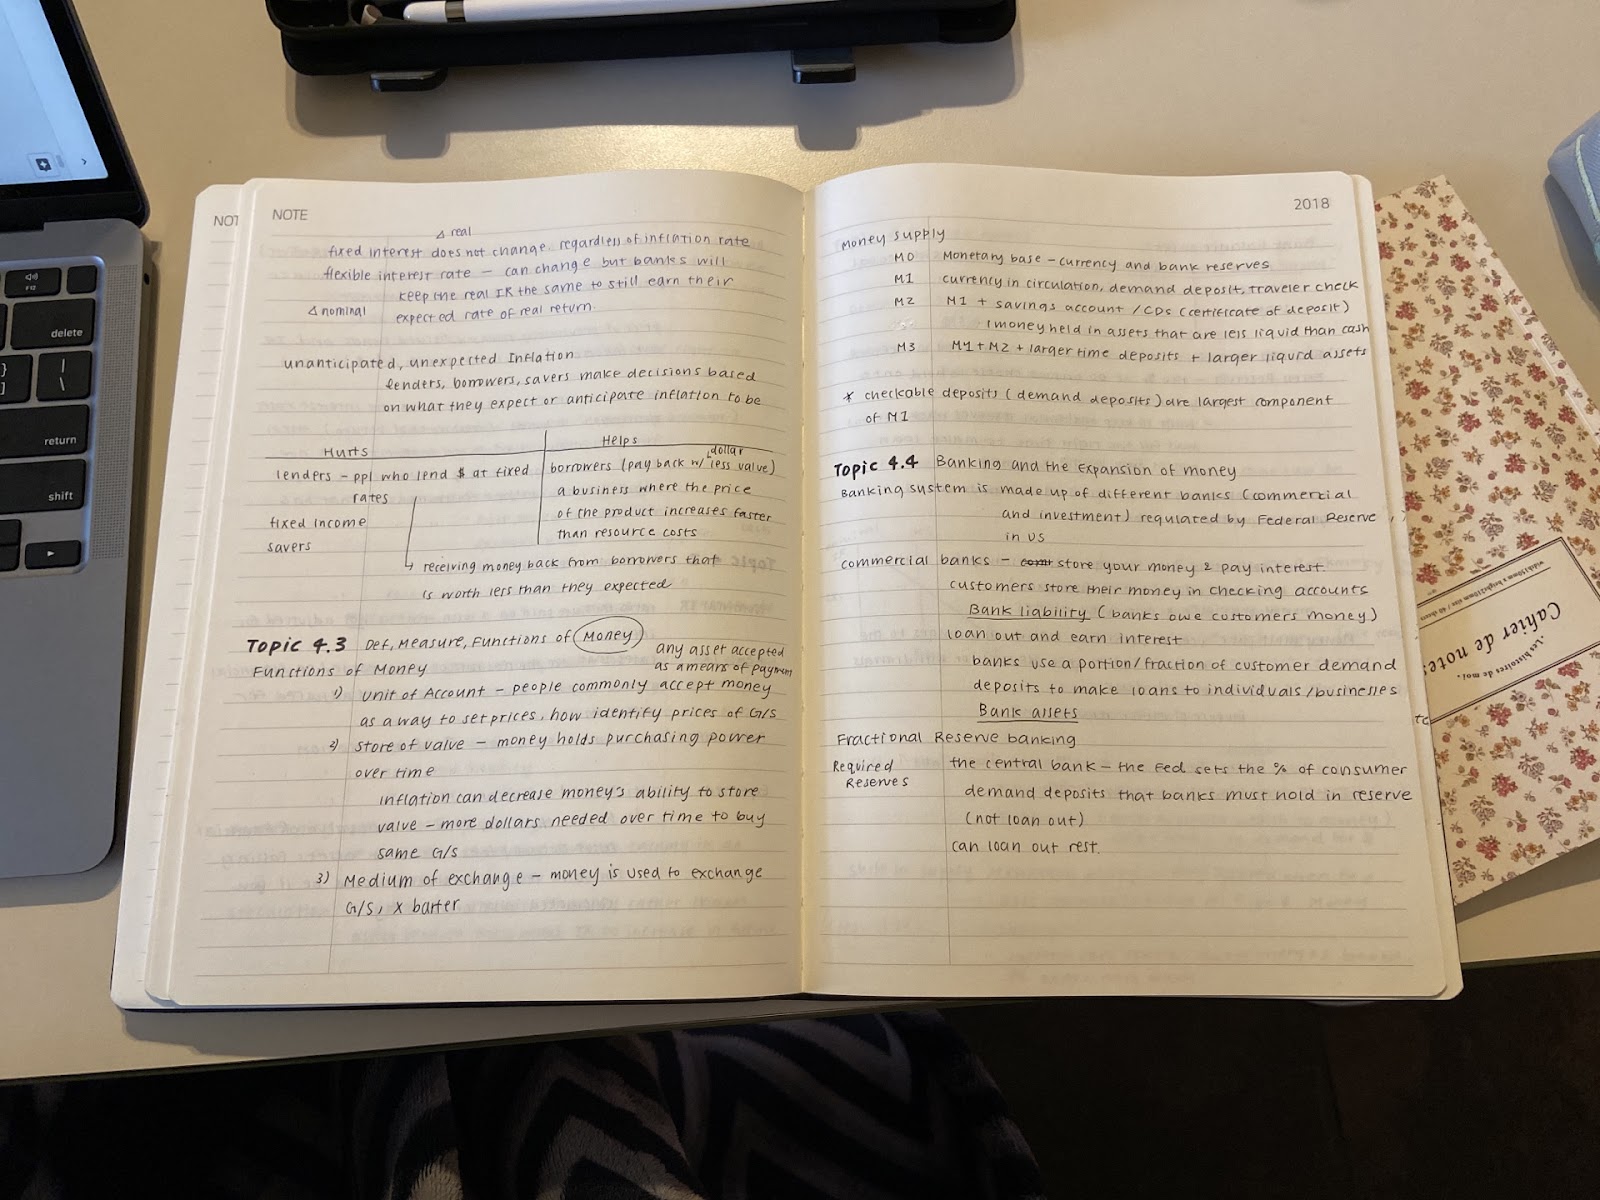 NOTE
Δ real
fixed interest does not change, regardless of inflation rate
flexible interest rate – can change but banks will
keep the real IR the same to still earn their
Δ nominal expected rate of real return.
unanticipated, unexpected Inflation
lenders, borrowers, savers make decisions based
on what they expect or anticipate inflation to be
Hurts
lenders – ppl who lend $ at fixed
rates
fixed income
savers
Helps
dollar
borrowers (pay back w/ less value)
a business where the price
of the product increases faster
than resource costs
↳ receiving money back from borrowers that
is worth less than they expected
Topic 4.3 Def, Measure, Functions of Money
any asset accepted
as a means of payment
Functions of Money
1) Unit of Account – people commonly accept money
as a way to set prices, how identify prices of G/S
2) Store of value – money holds purchasing power
over time
inflation can decrease money's ability to store
value – more dollars needed over time to buy
same G/S
3) Medium of exchange – money is used to exchange
G/S, x barter
2018
Money supply
M0 Monetary base – currency and bank reserves
M1 currency in circulation, demand deposit, traveler check
M2 M1 + savings account / CDs (certificate of deposit)
money held in assets that are less liquid than cash
M3 M1 + M2 + larger time deposits + larger liquid assets
* checkable deposits (demand deposits) are largest component
of M1
Topic 4.4 Banking and the Expansion of money
Banking system is made up of different banks (commercial
and investment) regulated by Federal Reserve
in US
commercial banks – store your money & pay interest.
customers store their money in checking accounts
Bank liability (banks owe customers money)
loan out and earn interest
banks use a portion/fraction of customer demand
deposits to make loans to individuals/businesses
Bank assets
Fractional Reserve banking
Required
Reserves
the central bank – the Fed sets the % of consumer
demand deposits that banks must hold in reserve
(not loan out)
can loan out rest.
NOT
F12
delete
return
shift
Les histoires de moi.
Cahier de note